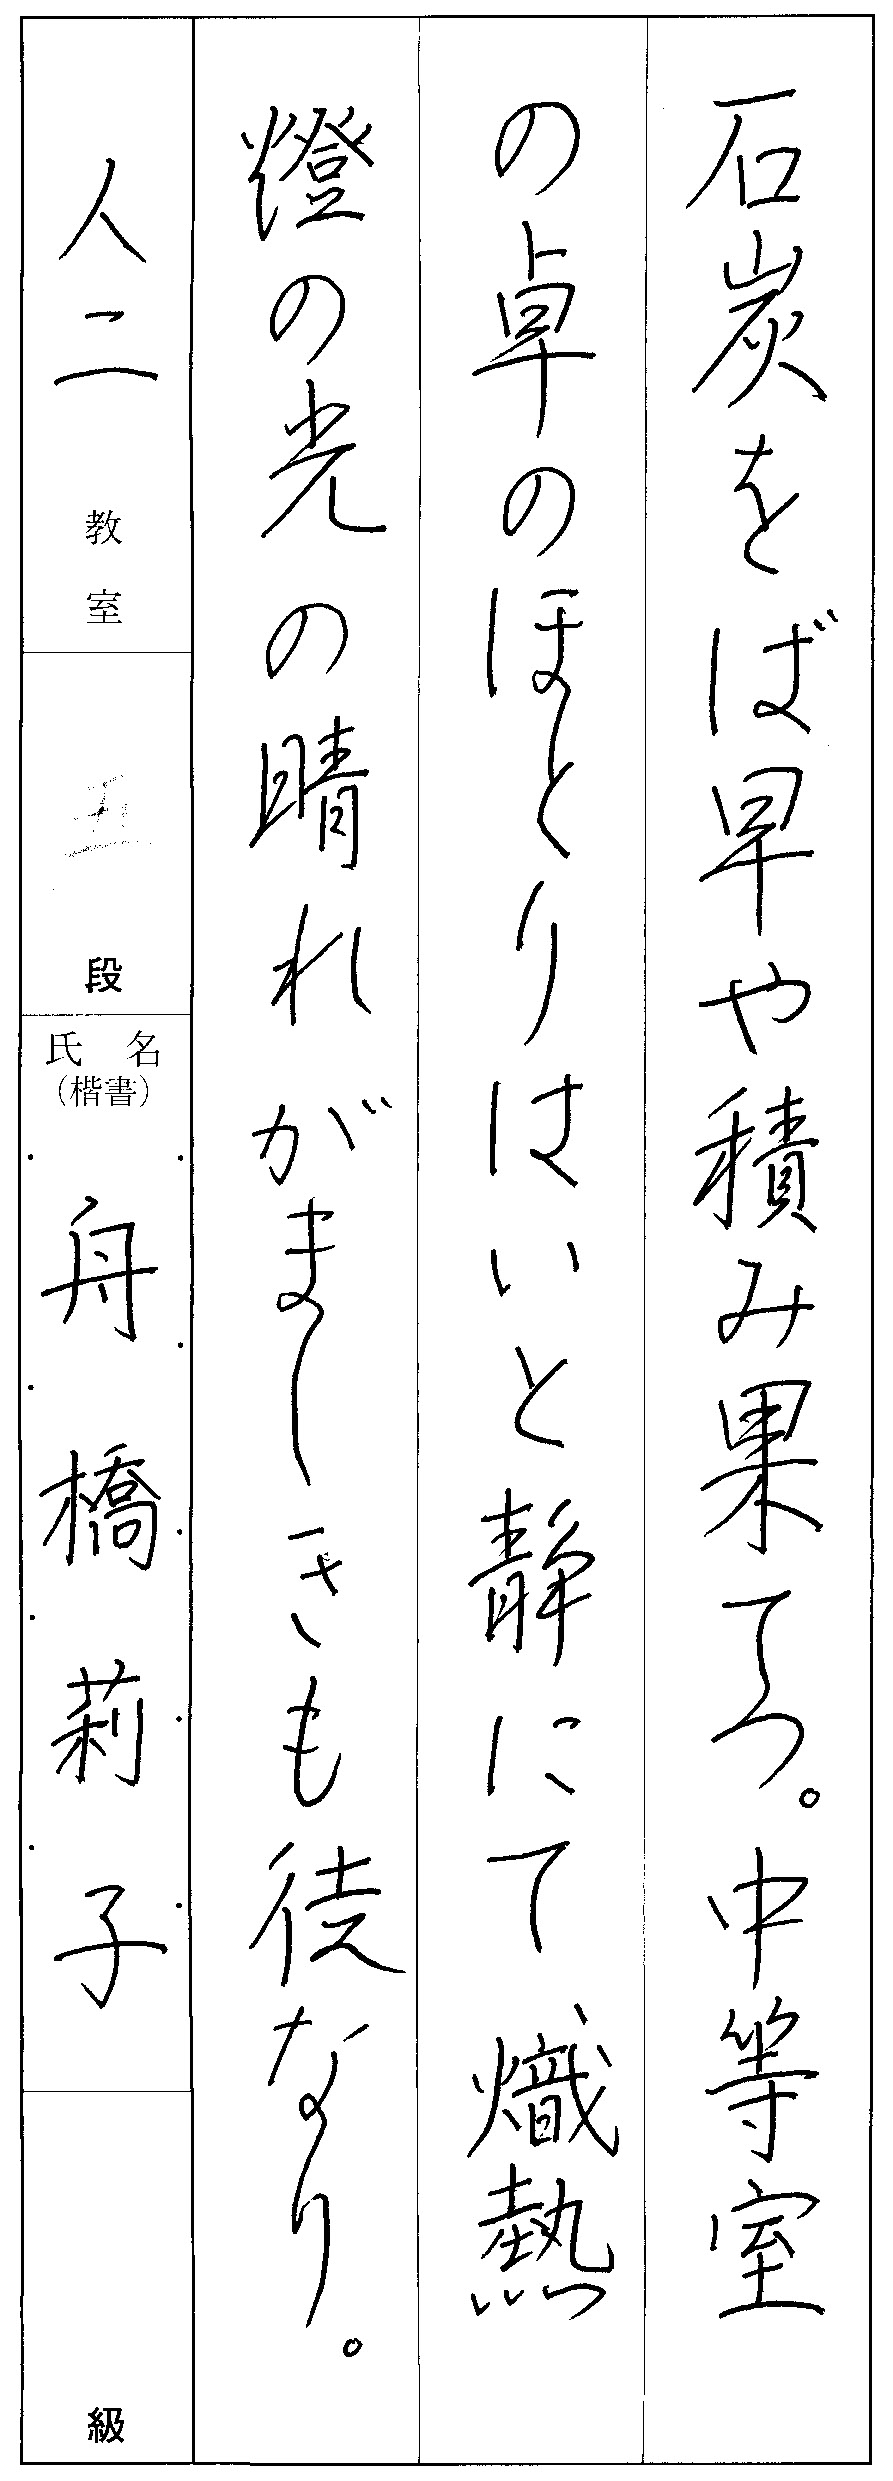 石炭をば早や積み果てつ。中等室
の卓のほとりはいと静にて熾熱
燈の光の晴れがましきも徒なり。
人二教室
五段
氏名
(楷書)
舟橋莉子
級